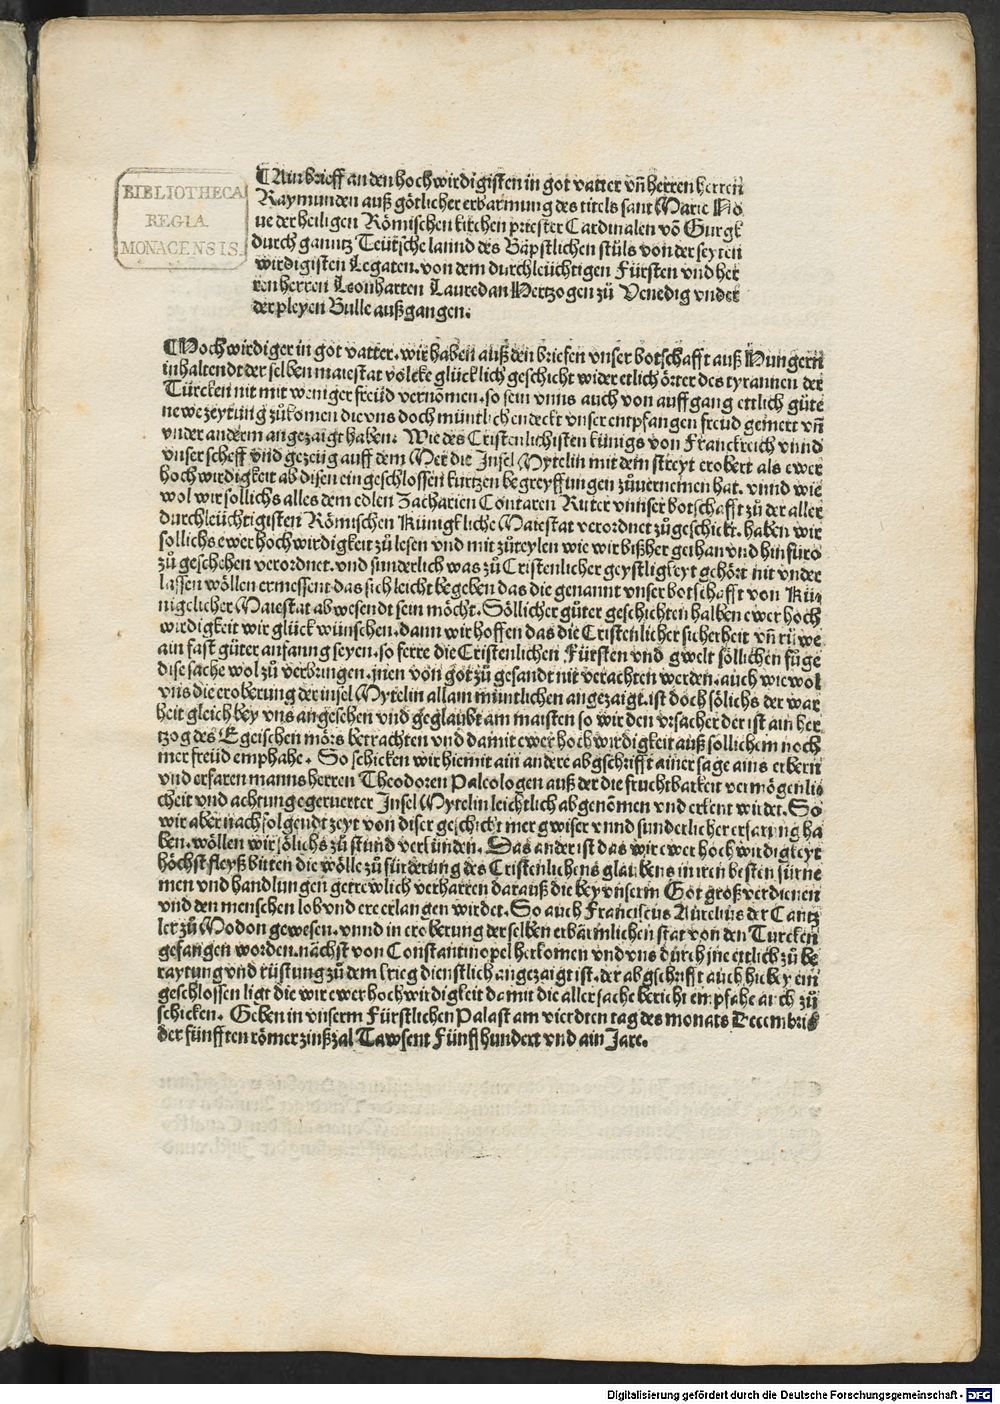 BIBLIOTHECA
REGIA
MONACENSIS.
¶Ain brieff an den hochwirdigisten in got vatter vñ herren herren
Raymunden auß götlicher erbarmung des titels sant Marie No
ue der heiligen Römischen kirchen priester Cardinalen võ Gurgk
durch ganntz Teütsche lannd des Bäpstlichen stůls von der seyten
wirdigisten Legaten. von dem durchleüchtigen Fürsten vnd her
ren herren Leonharten Lauredan Hertzogen zů Venedig vnder
der pleyen Bulle außgangen.
¶Hochwirdiger in got vatter. wir haben auß den briefen vnser botschafft auß Hungern
inhaltendt der selben maiestat völcke glücklich geschicht wider etlich örter des tyrannen der
Türcken nit mit weniger freüd vernomen. so sein vnns auch von auffgang ettlich gůte
newe zeytung zůkomen die vns doch müntlich endeckt vnser entpfangen freud gemert vñ
vnder anderm angezaigt haben. Wie des Cristenlichisten künigs von Franckreich vnnd
vnser scheff vnd gezeüg auff dem Mer die Jnsel Mytelin mit dem streyt erobert als ewer
hochwirdigkeit ab disen eingeschlossen kurtzen begreyffungen zůuernemen hat. vnnd wie
wol wir sollichs alles dem edlen Zacharien Contaren Ritter vnnser botschafft zů der aller
durchleüchtigisten Römischen Künigkliche Maiestat verordnet zůgeschickt. haben wir
sollichs ewer hochwirdigkeit zů lesen vnd mit zůteylen wie wir bißher gethan vnd hinfüro
zů geschehen verordnet. vnd sünderlich was zů Cristenlicher geystligkeyt gehört nit vnder
lassen wöllen ermessent das sich leicht begeben das die genannt vnser botschafft von Kü-
nigelicher Maiestat abwesendt sein möcht. Söllicher gůter geschichten halben ewer hoch
wirdigkeit wir glück wünschen. dann wir hoffen das die Cristenlicher sicherheit vñ růwe
ain fast gůter anfanng seyen. so ferre die Cristenlichen Fürsten vnd gwelt söllichen fůge
dise sache wol zů verbringen. jnen von got zů gesandt nit verachten werden. auch wiewol
vns die eroberung der insel Mytelin allain müntlichen angezaigt. ist doch sölichs der war
heit gleich bey vns angesehen vnd geglaubt am maisten so wir den vrsacher der ist ain her
tzog des Egeischen mörs betrachten vnd damit ewer hochwirdigkeit auß sollichem noch
mer freüd emphahe. So schicken wir hiemit ain andere abgschrifft ainer sage ains erbern
vnd erfaren manns herren Theodoren Paleologen auß der die fruchtbarkeit vermögenlis
cheit vnd achtung egeruerter Jnsel Mytelin leichtlich abgenomen vnd erkent wirdet. So
wir aber nachfolgendt zeyt von diser geschicht mer gwiser vnnd sunderlicher erfarung ha
ben. wöllen wir sölichs zů stund verkünden. Das ander ist das wir ewer hochwirdigkeyt
höchst fleyß bitten die wölle zů fürderung des Cristenlichens glaubens in iren besten fürne
men vnd handlungen getrewlich verharren darauß die bey vnserm Got groß verdienen
vnd den menschen lob vnd ere erlangen wirdet. So auch Franciscus Aurelius der Cantz
ler zů Modon gewesen. vnnd in eroberung der selben erbärmlichen stat von den Turcken
gefangen worden. nächst von Constantinopel herkomen vnd vns durch jne ettlich zů be
raytung vnd rüstung zů dem krieg dienstlich angezaigt ist. der abgschrifft auch hiebey ein
geschlossen ligt die wir ewer hochwirdigkeit damit die aller sache bericht empfahe auch zů
schicken. Geben in vnserm Fürstlichen Palast am vierdten tag des monats Decembris
der fünfften römer zinßzal Tawsent Fünffhundert vnd ain Jare.
Digitalisierung gefördert durch die Deutsche Forschungsgemeinschaft - DFG